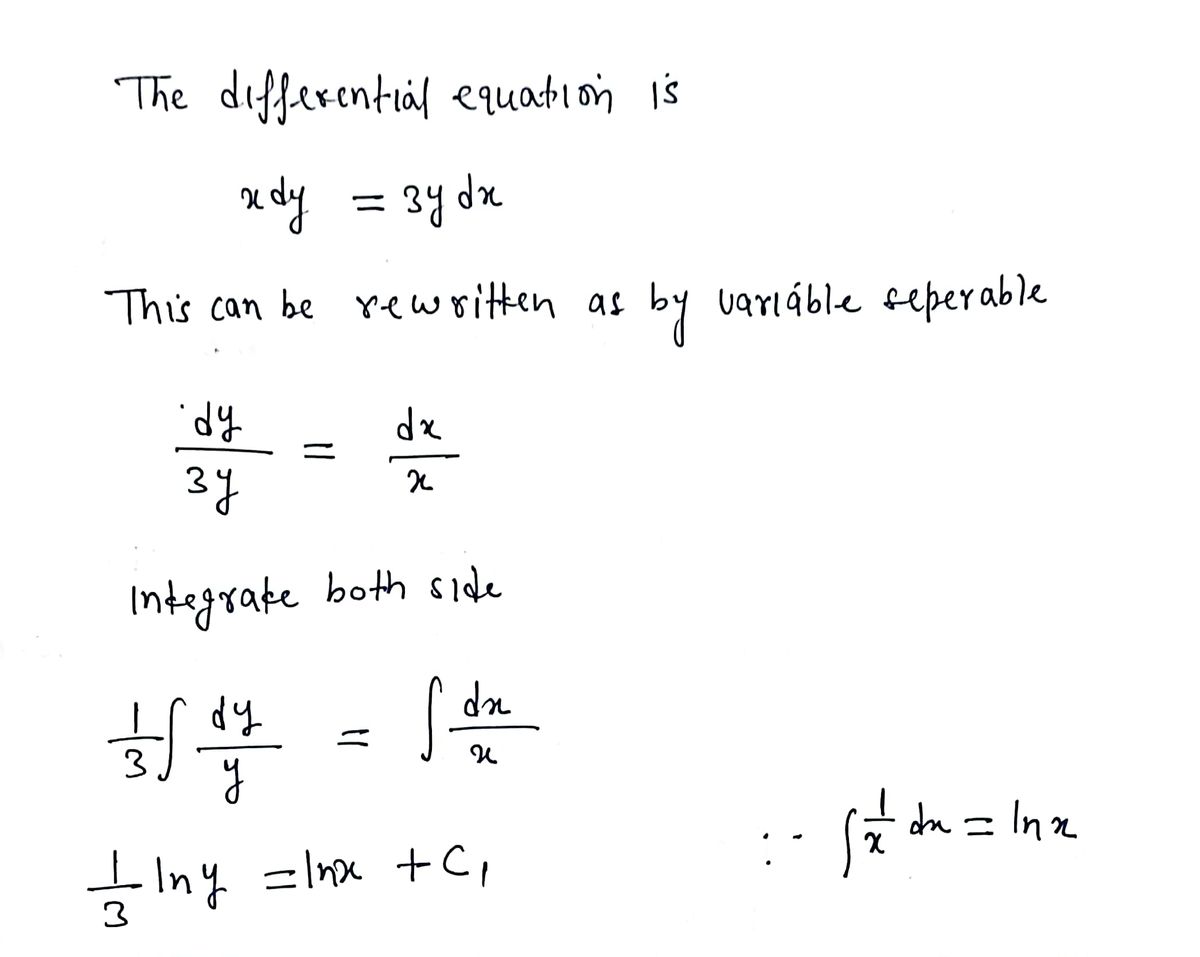 The differential equation is
x dy = 3y dx
This can be rewritten as by variable seperable
dy/3y = dx/x
Integrate both side
1/3 ∫ dy/y = ∫ dx/x
∵ ∫ 1/x dx = ln x
1/3 ln y = ln x + C₁